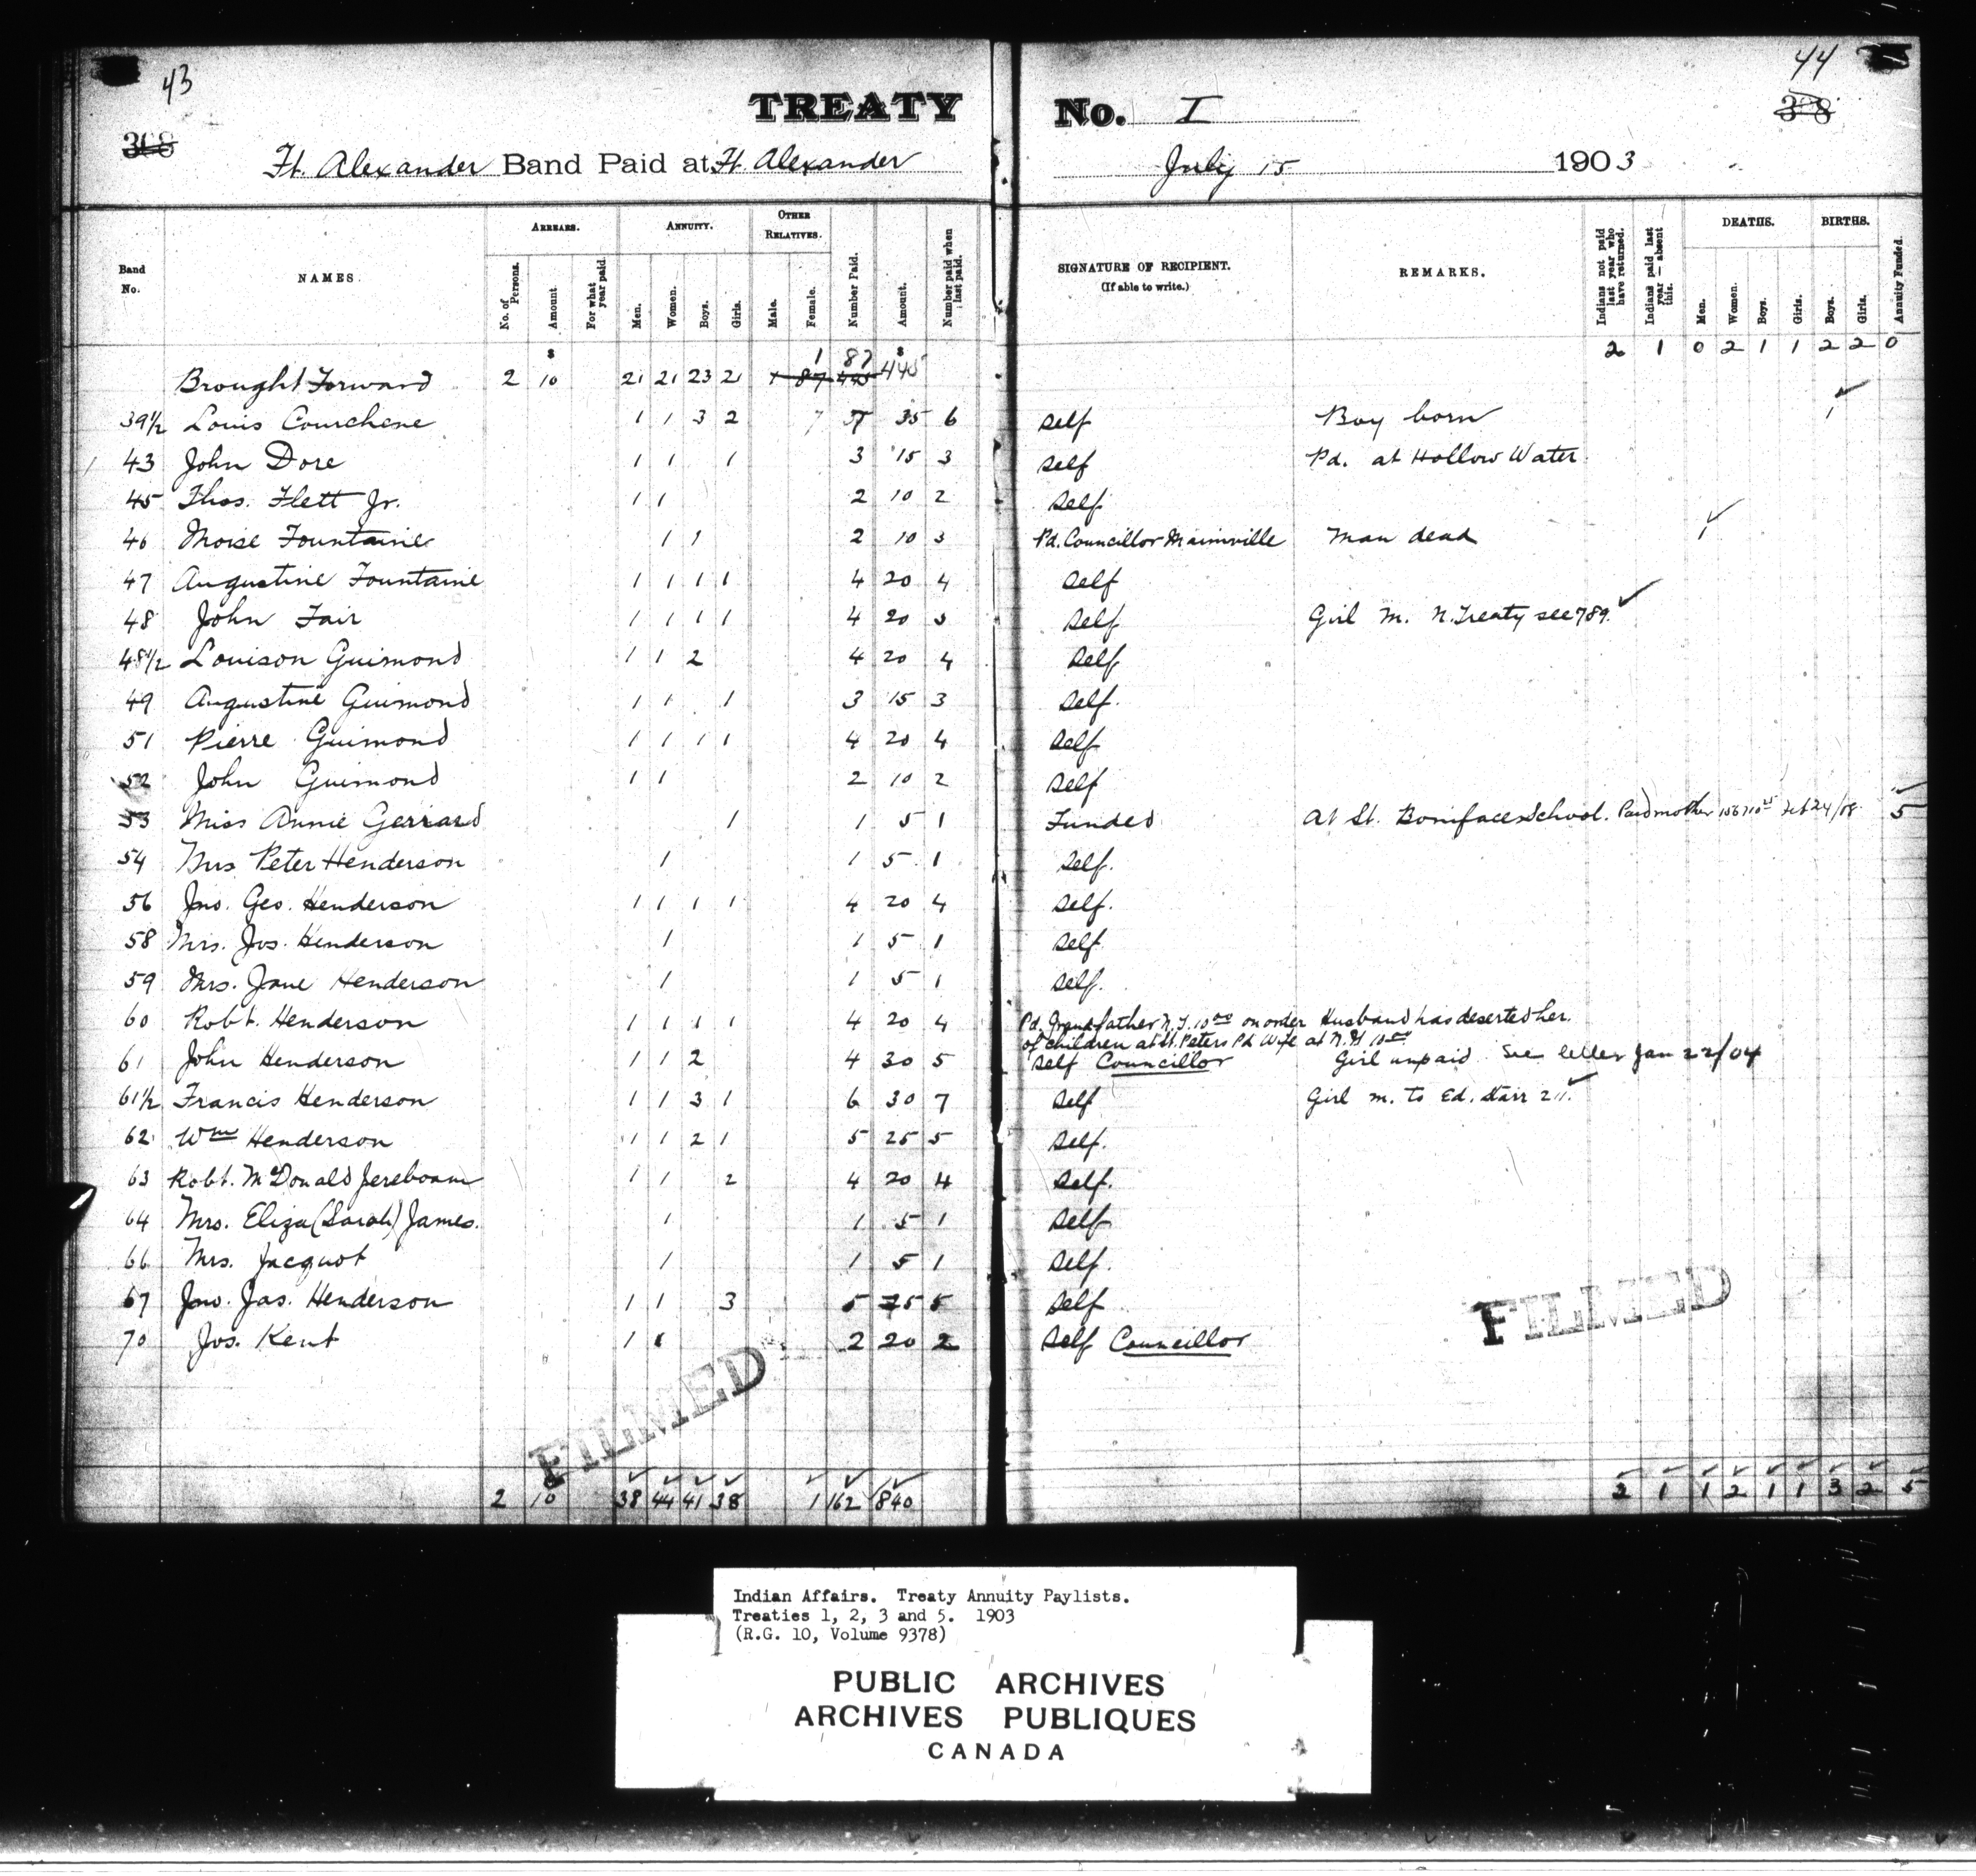 43
44
TREATY No. I
368
308
Ft. Alexander Band Paid at Ft. Alexander July 15 1903
Band No.
NAMES.
ARREARS.
No. of Persons.
Amount.
For what year paid.
ANNUITY.
Men.
Women.
Boys.
Girls.
OTHER RELATIVES.
Male.
Female.
Number Paid.
Amount.
Number paid when last paid.
SIGNATURE OF RECIPIENT.
(If able to write.)
REMARKS.
Indians not paid last year who have returned.
Indians paid last year — absent this.
DEATHS.
Men.
Women.
Boys.
Girls.
BIRTHS.
Boys.
Girls.
Annuity Funded.
$ 1 87 $ 2 1 0 2 1 1 2 2 0
Brought Forward 2 10 21 21 23 21 1 87 445 445
39½ Louis Courchene 1 1 3 2 7 7 35 6 Self Boy born 1
43 John Dore 1 1 1 3 15 3 Self Pd. at Hollow Water
45 Thos. Flett Jr. 1 1 2 10 2 Self
46 Moise Fountaine 1 1 2 10 3 Pd. Councillor Mainville Man dead 1
47 Augustine Fountaine 1 1 1 1 4 20 4 Self
48 John Fair 1 1 1 1 4 20 5 Self Girl m. N. Treaty see 789.
48½ Louison Guimond 1 1 2 4 20 4 Self
49 Augustine Guimond 1 1 1 3 15 3 Self.
51 Pierre Guimond 1 1 1 1 4 20 4 Self
52 John Guimond 1 1 2 10 2 Self
53 Miss Annie Gerrard 1 1 5 1 Funded At St. Boniface School. Paid mother Feb 24/08 5
54 Mrs Peter Henderson 1 1 5 1 Self.
56 Jno. Geo. Henderson 1 1 1 1 4 20 4 Self.
58 Mrs. Jos. Henderson 1 1 5 1 Self
59 Mrs. Jane Henderson 1 1 5 1 Self.
60 Robt. Henderson 1 1 1 1 4 20 4 Pd. Grandfather N.T. 10 00 on order Husband has deserted her.
of children at St. Peters Pd Wife at R.H 10 00
61 John Henderson 1 1 2 4 30 5 Self Councillor Girl unpaid See letter Jan 22/04
61½ Francis Henderson 1 1 3 1 6 30 7 Self Girl m. to Ed. Starr 211.
62 Wm Henderson 1 1 2 1 5 25 5 Self.
63 Robt. McDonald Jereboam 1 1 2 4 20 4 Self.
64 Mrs. Eliza (Sarah) James. 1 1 5 1 Self
66 Mrs. Jacquot 1 1 5 1 Self.
67 Jno. Jas. Henderson 1 1 3 5 25 5 Self
70 Jos. Kent 1 1 2 20 2 Self Councillor
FILMED
FILMED
2 10 38 44 41 38 1 162 840 2 1 1 2 1 1 3 2 5
Indian Affairs. Treaty Annuity Paylists.
Treaties 1, 2, 3 and 5. 1903
(R.G. 10, Volume 9378)
PUBLIC ARCHIVES
ARCHIVES PUBLIQUES
CANADA